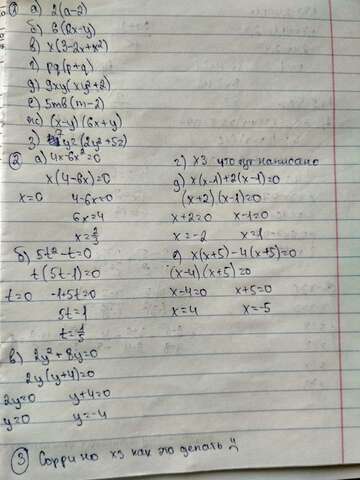 ① а) 2(a-2)
б) 3(8x-y)
в) x(3-2x+x²)
г) pq(p+q)
д) 9xy(xy²+2)
е) 5mb(m-2)
ж) (x-y)(6x+y)
з) 7yz(2y²+5z)
② а) 4x-6x²=0
x(4-6x)=0
x=0 4-6x=0
6x=4
x=2/3
б) 5t²-t=0
t(5t-1)=0
t=0 -1+5t=0
5t=1
t=1/5
в) 2y²+8y=0
2y(y+4)=0
2y=0 y+4=0
y=0 y=-4
г) хз что тут написано
д) x(x-1)+2(x-1)=0
(x+2)(x-1)=0
x+2=0 x-1=0
x=-2 x=1
е) x(x+5)-4(x+5)=0
(x-4)(x+5)=0
x-4=0 x+5=0
x=4 x=-5
③ Сорри но хз как это делать